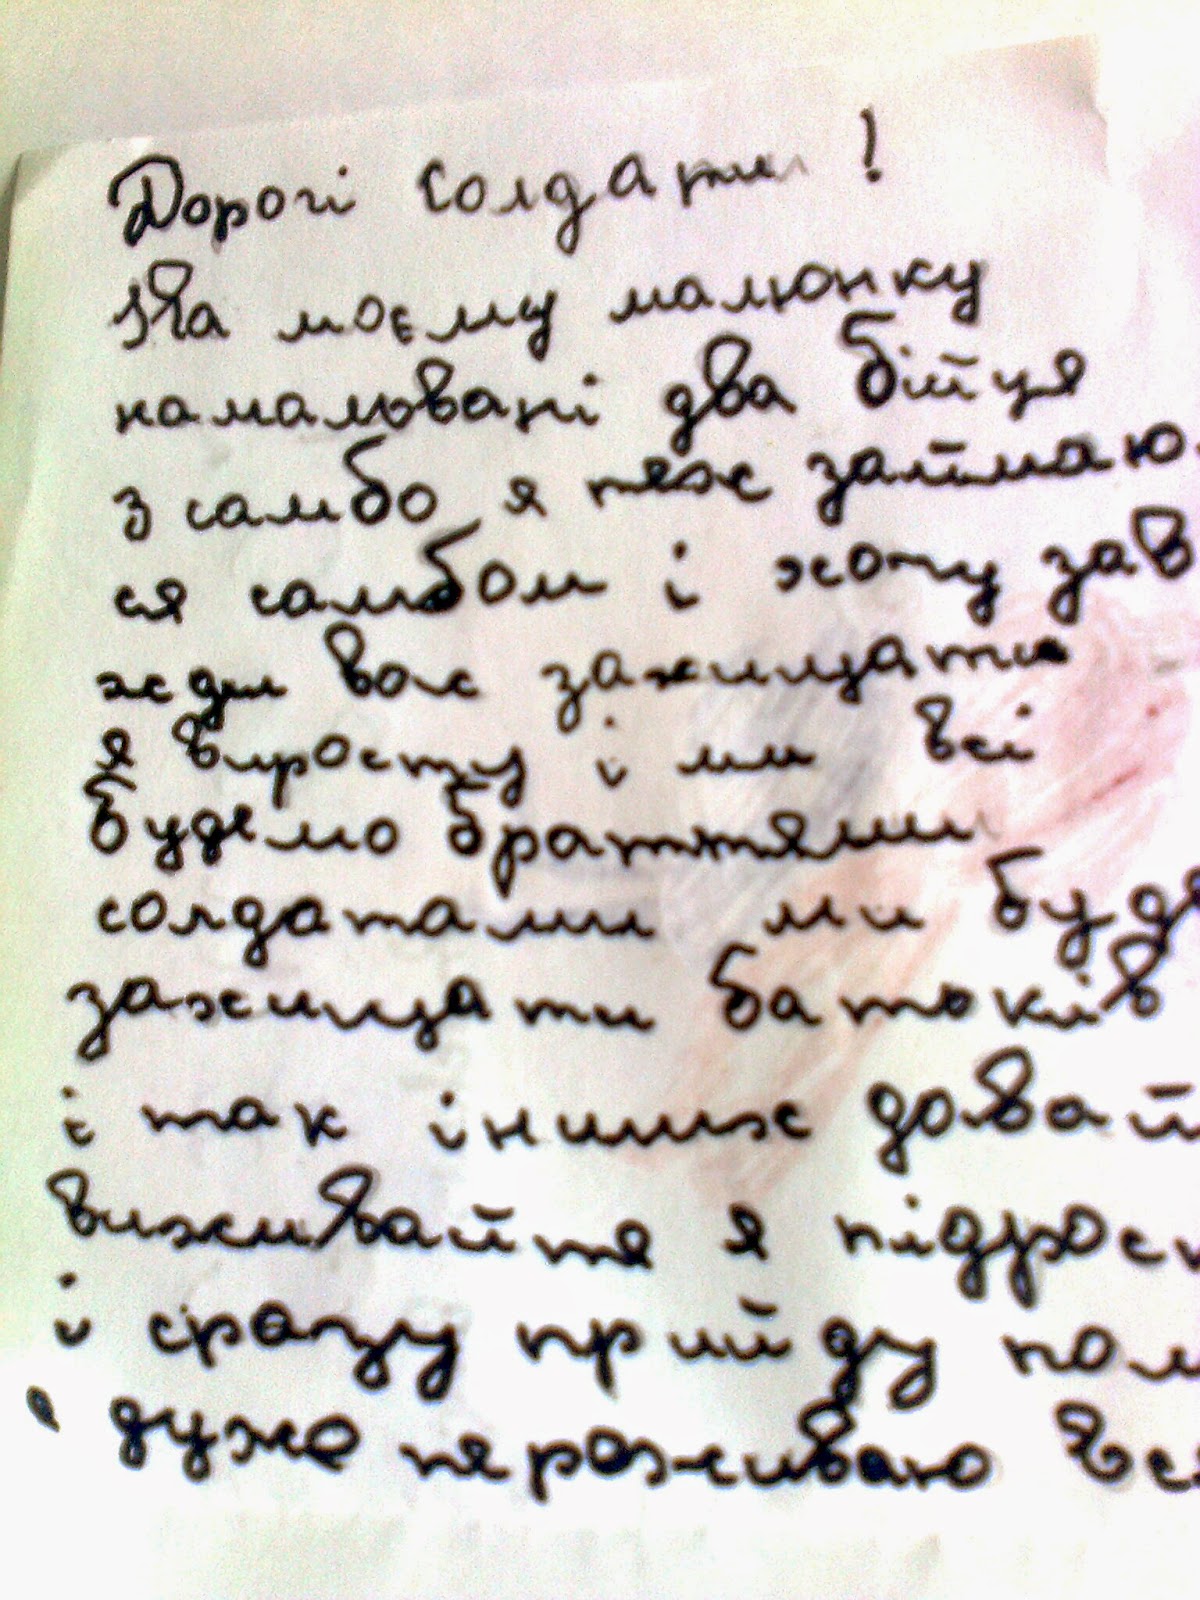 Дорогі солдати!
На моєму малюнку
намальвані два бійця
з самбо я теж займаю-
ся самбом і хочу зав
жди вас захищати
я виросту і ми всі
будемо браттями
солдатами ми буде
захищати батьків
і так інших довай
виживайте я підрост
і сразу прийду пом
дуже переживаю все